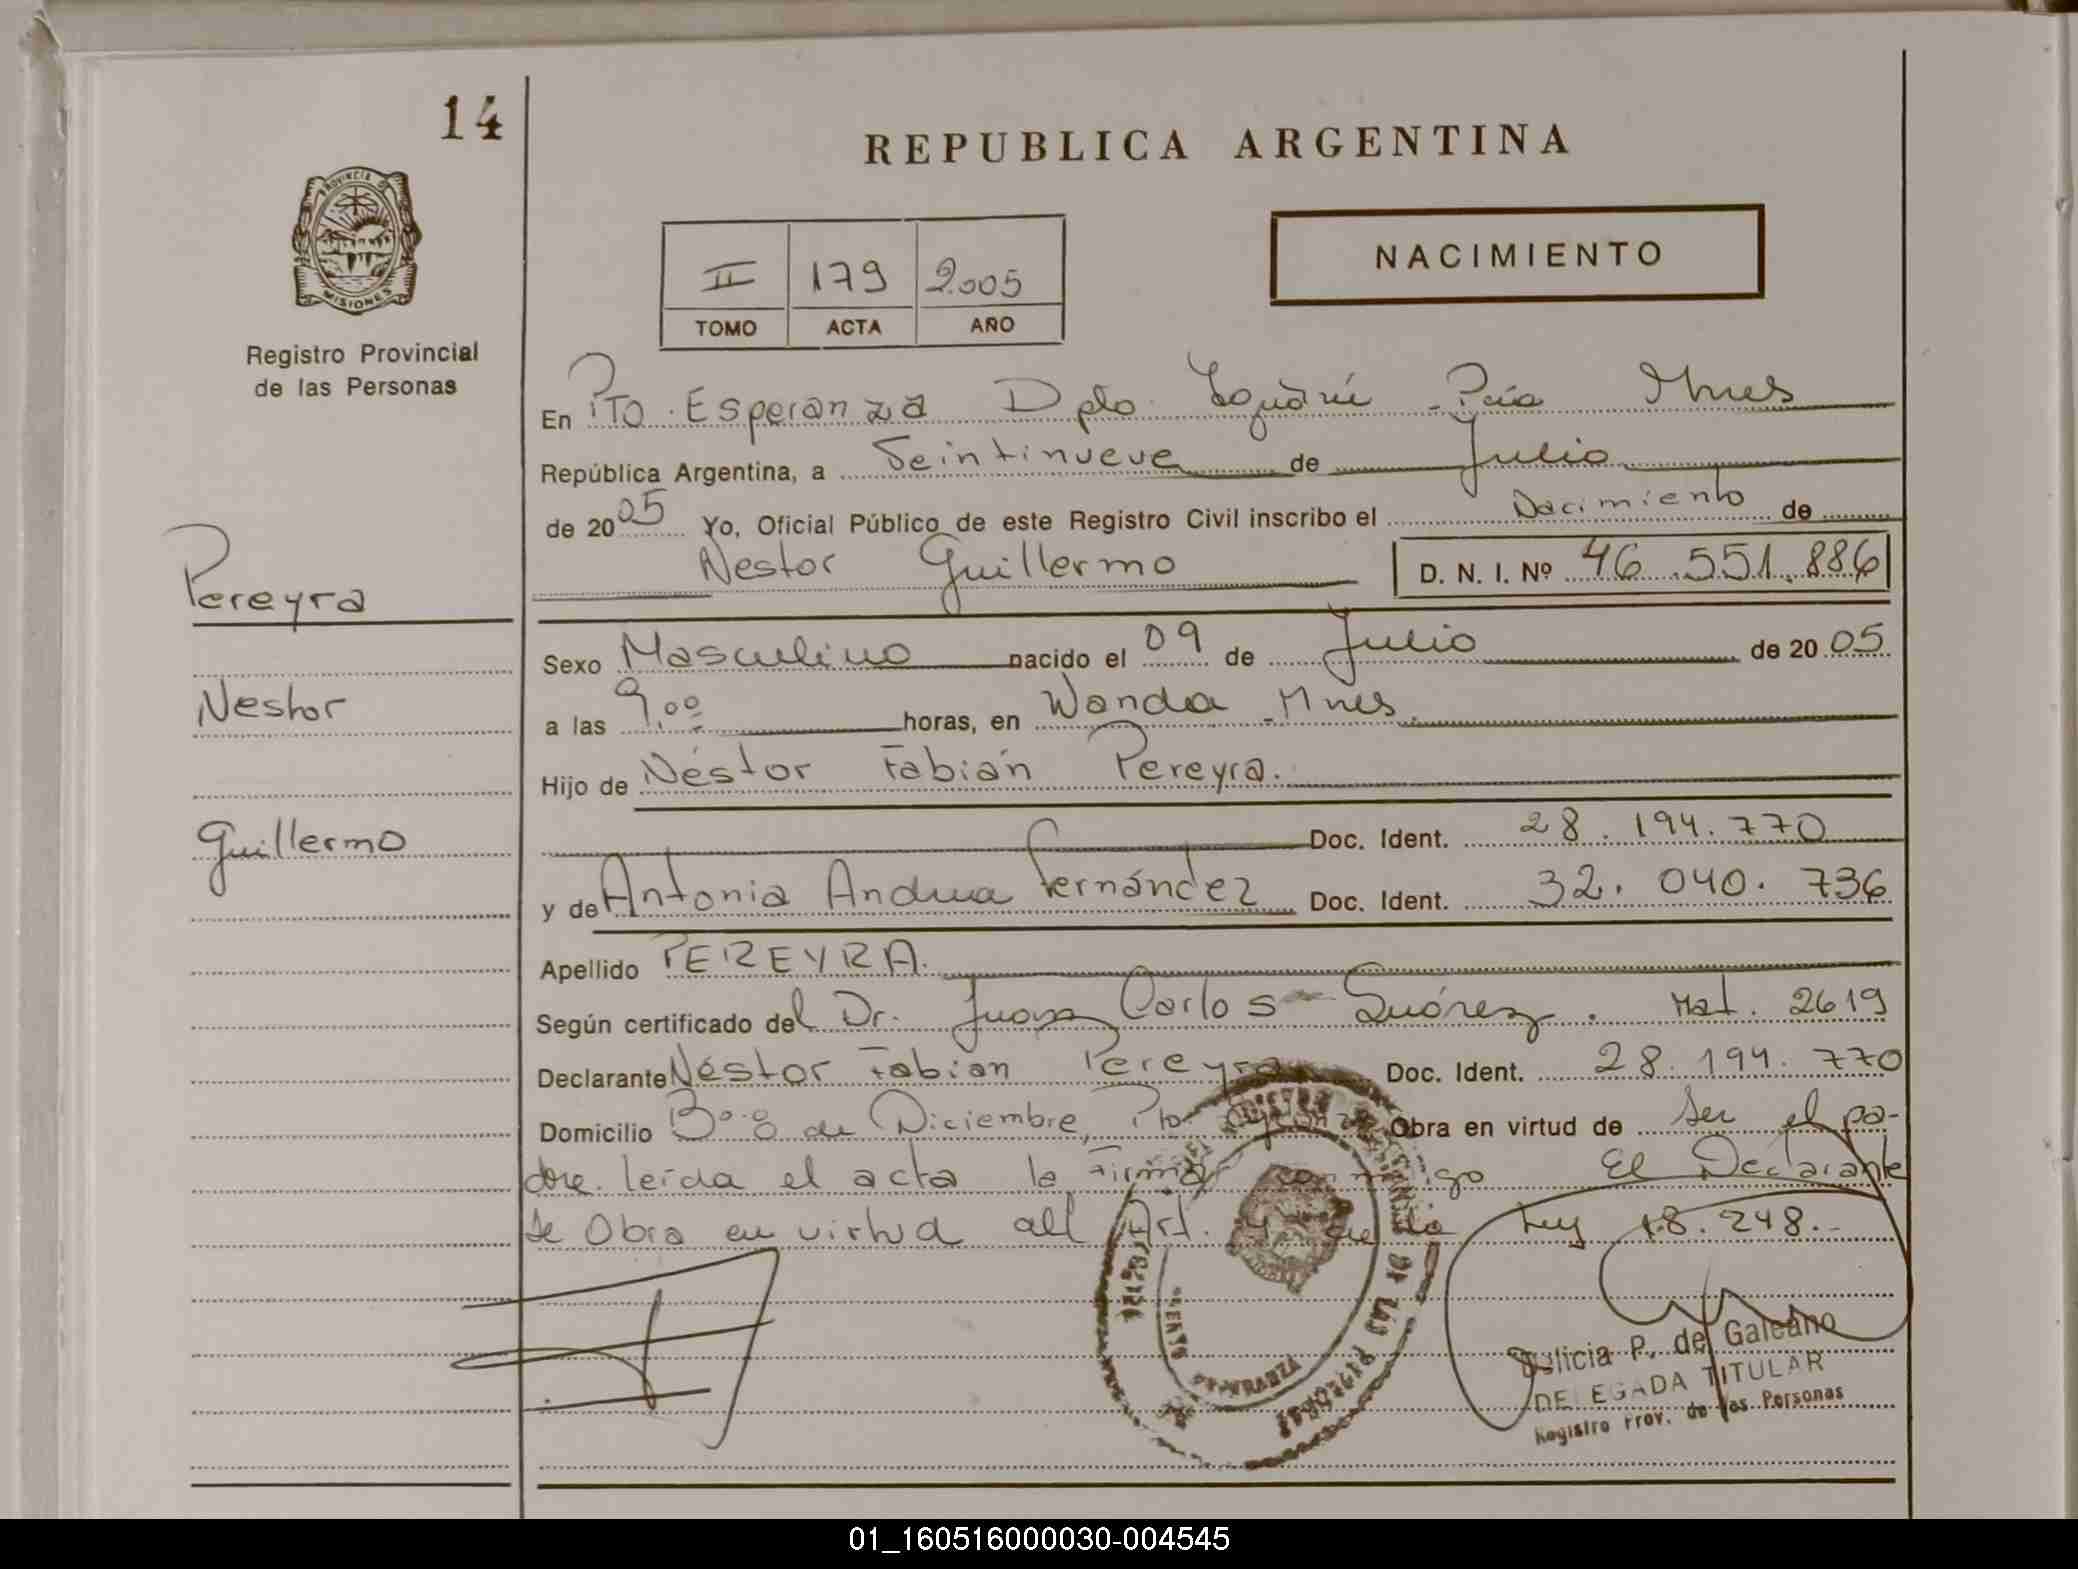 14
REPUBLICA ARGENTINA
PROVINCIA DE
MISIONES
Registro Provincial
de las Personas
II 179 2.005
TOMO ACTA AÑO
NACIMIENTO
En Pto. Esperanza Dpto. Iguazú - Pcia Mnes
República Argentina, a Veintinueve de Julio
de 2005 Yo, Oficial Público de este Registro Civil inscribo el Nacimiento de
Nestor Guillermo D. N. I. Nº 46.551.886
Pereyra
Nestor
Guillermo
Sexo Masculino nacido el 09 de Julio de 2005
a las 9,00 horas, en Wanda - Mnes
Hijo de Néstor Fabián Pereyra.
Doc. Ident. 28.194.770
y de Antonia Andrea Fernández Doc. Ident. 32.040.736
Apellido PEREYRA.
Según certificado del Dr. Juan Carlos Suárez. Mat. 2619
Declarante Néstor Fabian Pereyra Doc. Ident. 28.194.770
Domicilio Bo. 8 de Diciembre, Pto Obra en virtud de ser el pa-
dre. leída el acta la Firma conmigo El Declarante
se Obra en virtud all Art. 4 de la Ley 18.248.-
DE LAS PERSONAS
P. de Galeano
DELEGADA TITULAR
Registro Prov. de las Personas
01_160516000030-004545